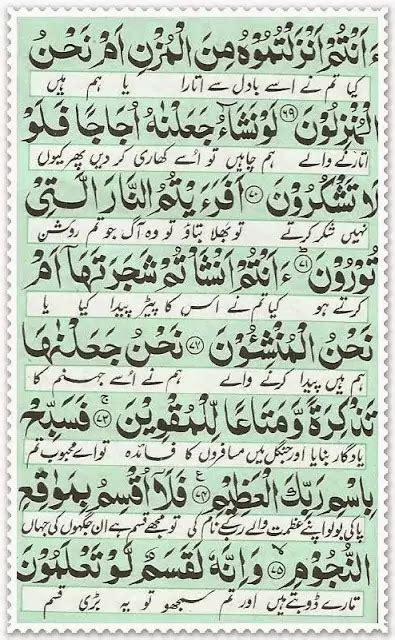 ءَاَنْتُمْ اَنْزَلْتُمُوْهُ مِنَ الْمُزْنِ اَمْ نَحْنُ
کیا تم نے اسے بادل سے اتارا یا ہم ہیں
الْمُنْزِلُوْنَ ﴿۶۹﴾ لَوْ نَشَآءُ جَعَلْنٰهُ اُجَاجًا فَلَوْ
اتارنے والے ہم چاہیں تو اُسے کھاری کر دیں پھر کیوں
لَا تَشْكُرُوْنَ ﴿۷۰﴾ اَفَرَءَيْتُمُ النَّارَ الَّتِيْ
نہیں شکر کرتے تو بھلا بتاؤ تو وہ آگ جو تم روشن
تُوْرُوْنَ ﴿۷۱﴾ ءَاَنْتُمْ اَنْشَاْتُمْ شَجَرَتَهَاۤ اَمْ
کرتے ہو کیا تم نے اس کا پیڑ پیدا کیا یا
نَحْنُ الْمُنْشِـُٔوْنَ ﴿۷۲﴾ نَحْنُ جَعَلْنٰهَا
ہم ہیں پیدا کرنے والے ہم نے اُسے جہنم کا
تَذْكِرَةً وَّمَتَاعًا لِّلْمُقْوِيْنَ ﴿۷۳﴾ فَسَبِّحْ
یادگار بنایا اور جنگل میں مسافروں کا فائدہ تو اے محبوب تم
بِاسْمِ رَبِّكَ الْعَظِيْمِ ﴿۷۴﴾ فَلَاۤ اُقْسِمُ بِمَوٰقِعِ
پاکی بولو اپنے عظمت والے رب کے نام کی تو مجھے قسم ہے ان جگہوں کی جہاں
النُّجُوْمِ ﴿۷۵﴾ وَاِنَّهٗ لَقَسَمٌ لَّوْ تَعْلَمُوْنَ
تارے ڈوبتے ہیں اور تم سمجھو تو یہ بڑی قسم